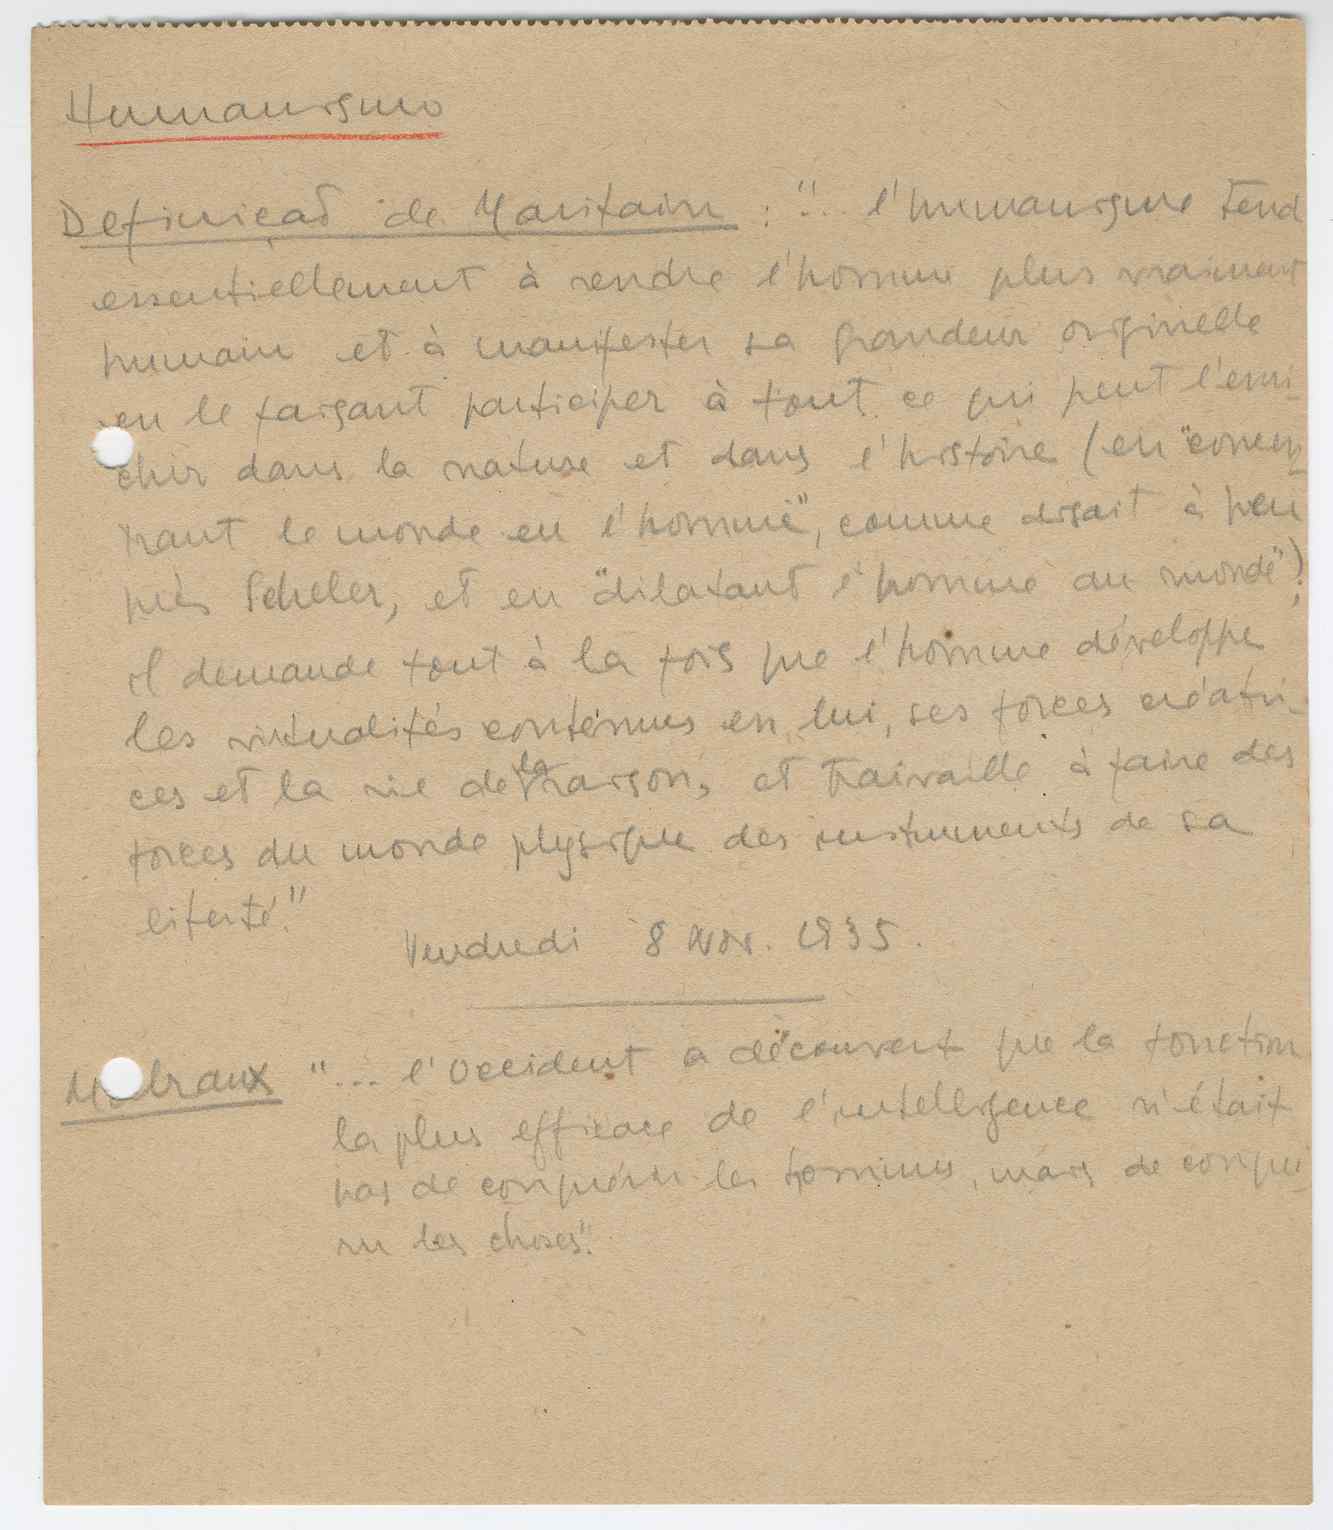 Humanismo
Definição de Maritain : "... l'humanisme tend
essentiellement à rendre l'homme plus vraiment
humain et à manifester sa grandeur originelle
en le faisant participer à tout ce qui peut l'enri-
chir dans la nature et dans l'histoire (en "concen-
trant le monde en l'homme", comme disait à peu
près Scheler, et en "dilatant l'homme au monde");
il demande tout à la fois que l'homme développe
les virtualités contenues en lui, ses forces créatri-
ces et la vie de la raison, et travaille à faire des
forces du monde physique des instruments de sa
liberté."
Vendredi 8 Nov. 1935.
Malraux "... l'Occident a découvert que la fonction
la plus efficace de l'intelligence n'était
pas de conquérir les hommes, mais de conqué-
rir les choses".